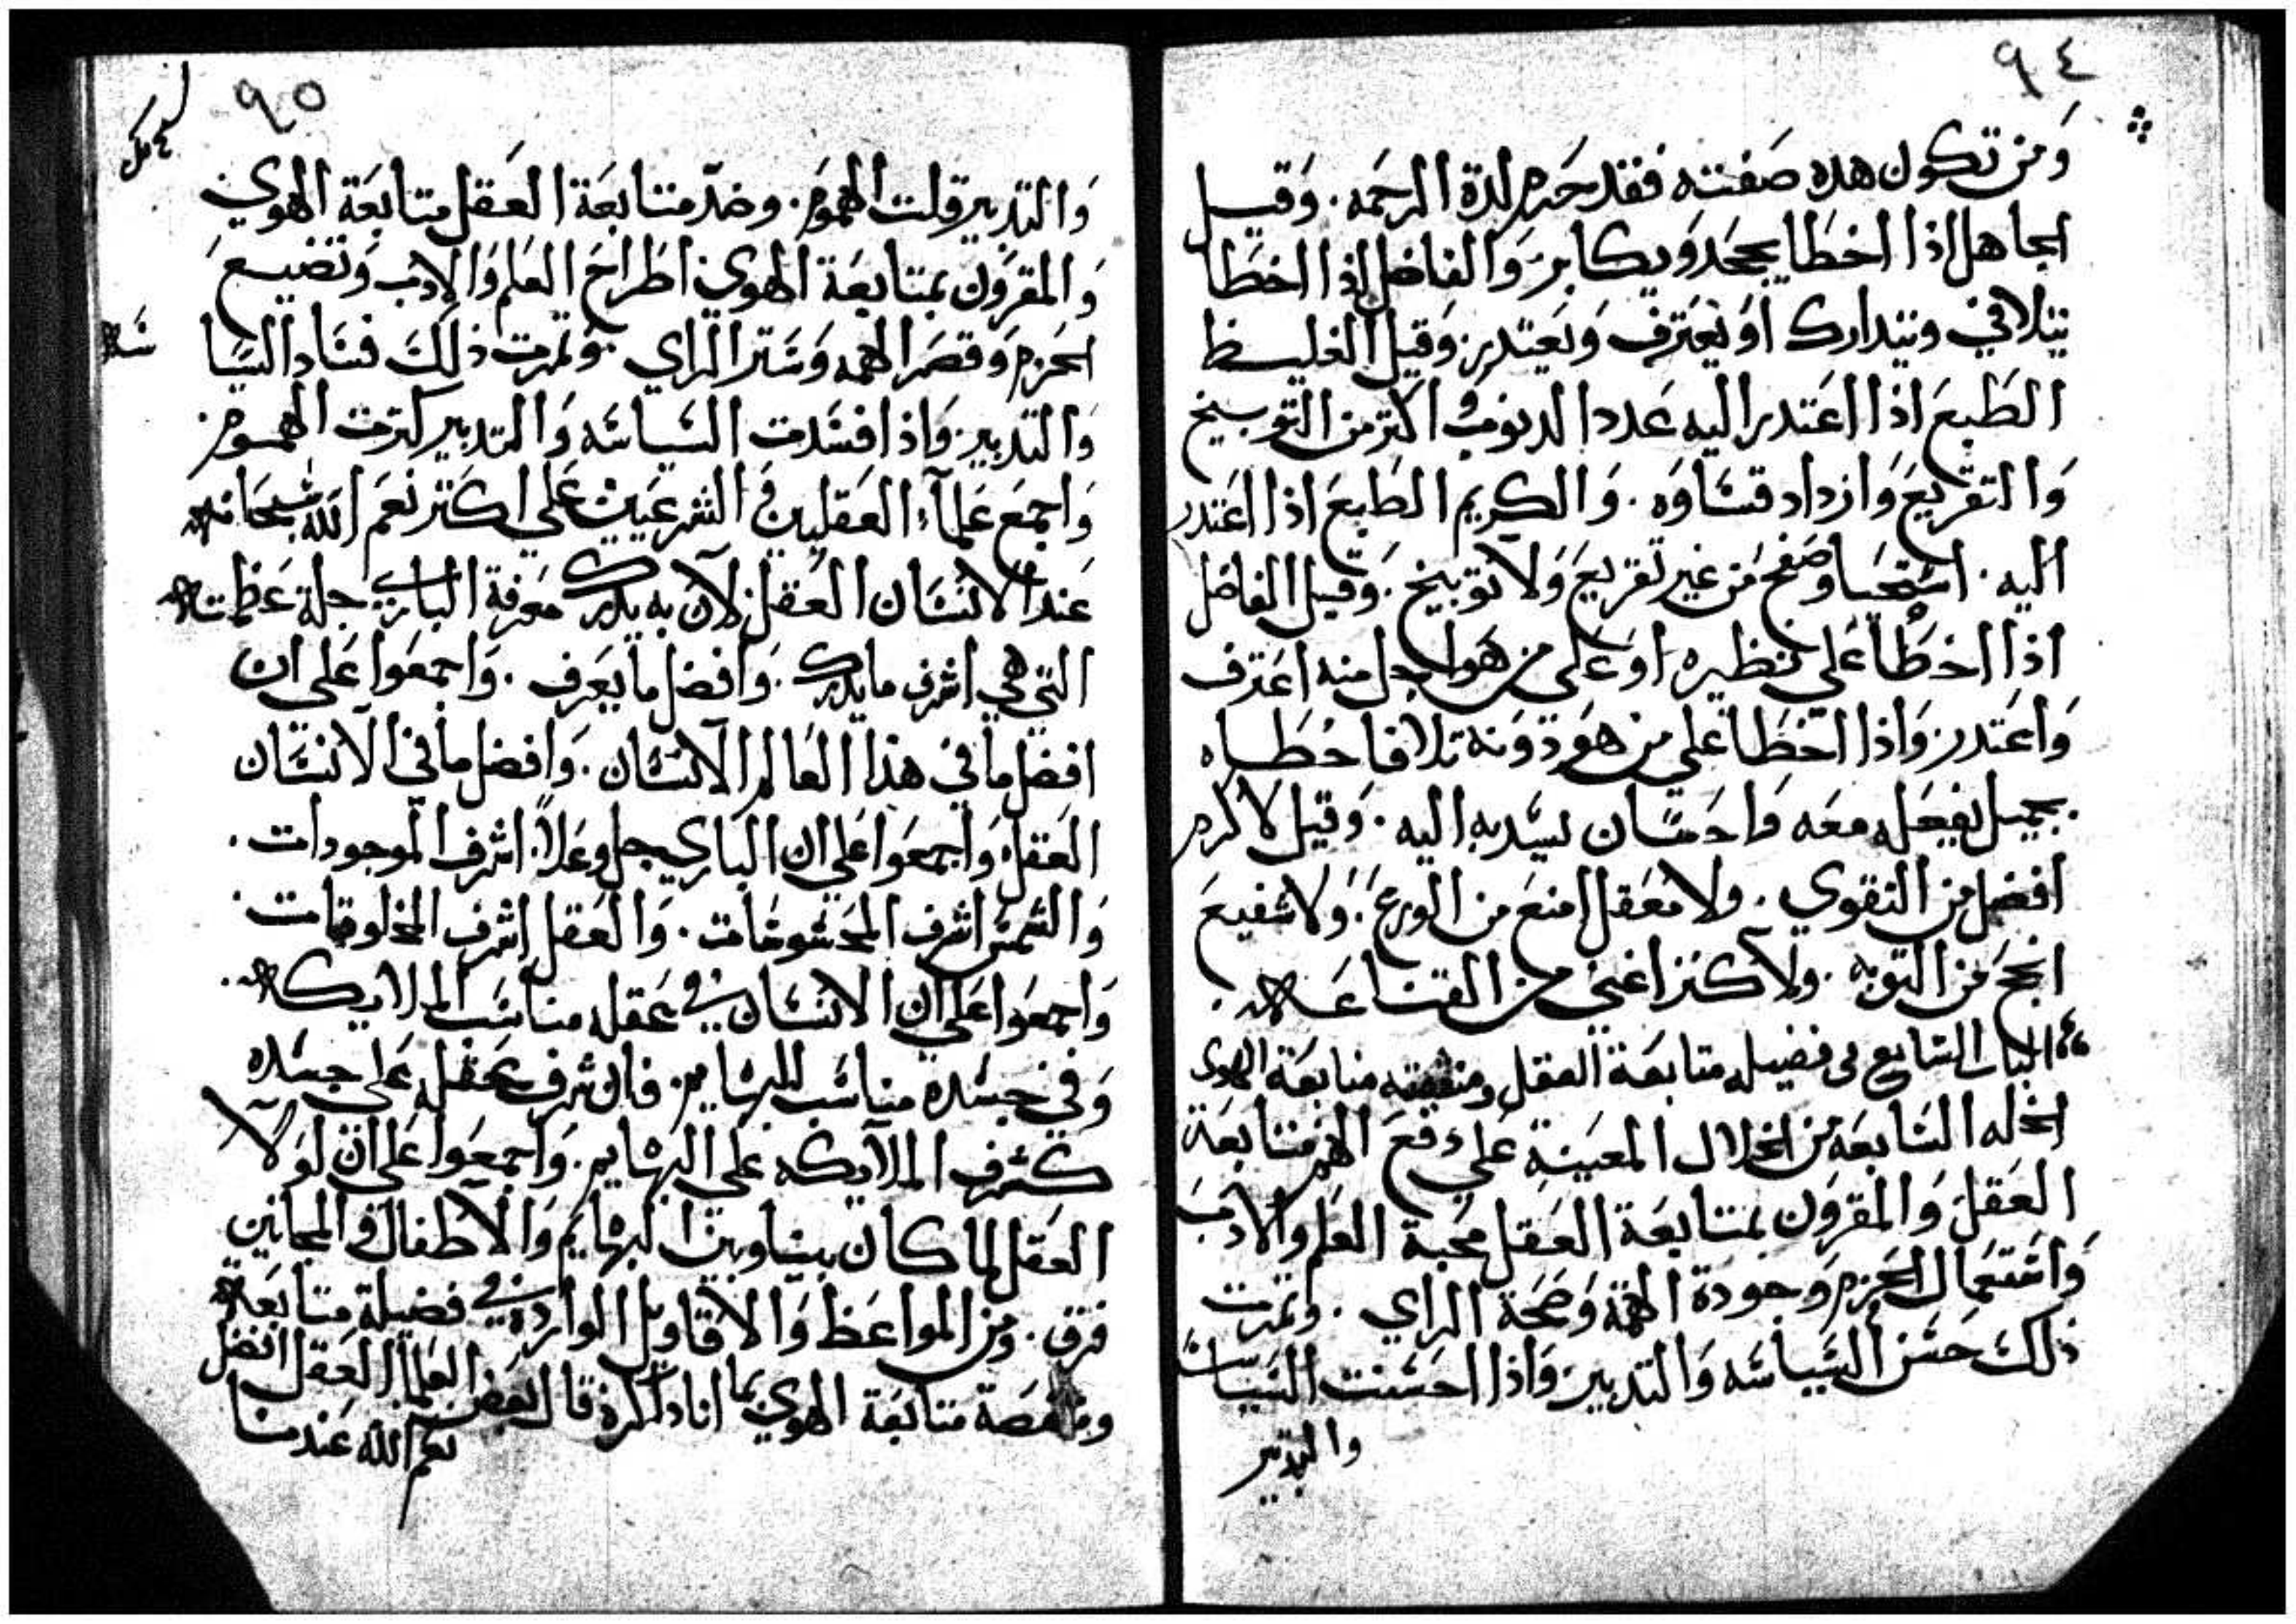 ٩٤
ومن تكون هده صفته فقد حرم لدة الرحمه . وقيل
الجاهل اذا اخطا يجحد ويكابر والفاضل اذا اخطا
يتلافي ويتدارك او يعترف ويعتدر . وقيل الغليظ
الطبع اذا اعتدر اليه عدد الدنوب و اكتر من التوبيخ
والتقريع وازداد قساوه . والكريم الطبع اذا اعتدر
اليه . استحيا وصفح من غير تقريع ولا توبيخ . وقيل الفاضل
اذا اخطا علي نظيره او علي من هو اجل منه اعترف
واعتدر . واذا اخطا علي من هو دونه تلافا خطاه
بجميل يفعله معه واحسان يسديه اليه . وقيل لا كرم
افضل من التقوي . ولا معقل امنع من الورع . ولا شفيع
انجح من التوبه . ولا كنز اغني من القناعه .
الباب السابع في فضيله متابعة العقل ومنقصته متابعة الهوي
الخله السابعه من الخلال المعينة علي دفع الهم متابعة
العقل والمقرون بمتابعة العقل محبة العلم والادب
واستعمال الحزم وجودة الهمة وصحة الراي . وتمرت
ذلك حسن السياسه والتدبير . واذا احسنت السياسة
والتدبير
٩٥
والتدبير قلت الهموم . وضد متابعة العقل متابعة الهوي
والمقرون بمتابعة الهوي اطراح العلم والادب وتضيع
الحزم وقصر الهمه وستر الراي . وتمرت ذلك فساد السيا
سه
والتدبير . واذا فسدت السياسه والتدبير كترت الهموم .
واجمع علماء العقليين و الشرعيين علي اكتر نعم الله سبحانه
عند الانسان العقل لان به يدرك معرفة الباري جلة عظمته
التي هي اشرف ما يدرك . وافضل ما يعرف . واجمعوا علي ان
افضل ما في هذا العالم الانسان . وافضل ما في الانسان
العقل واجمعوا علي ان الباري جل وعلا اشرف الموجودات .
والشمس اشرف المحسوسات . والعقل اشرف المخلوقات .
واجمعوا علي ان الانسان في عقله مناسب الملايكه .
وفي جسده مناسب للبهايم . فان شرف عقله علي جسده
كشرف الملايكه علي البهايم . واجمعوا علي ان لولا
العقل لما كان بيننا وبين البهايم والاطفال و المجانين
فرق . ومن المواعظ والاقاويل الوارده في فضيلة متابعة
ومنقصة متابعة الهوي بما انا داكره قال بعض العلما العقل افضل
نعم الله عندنا